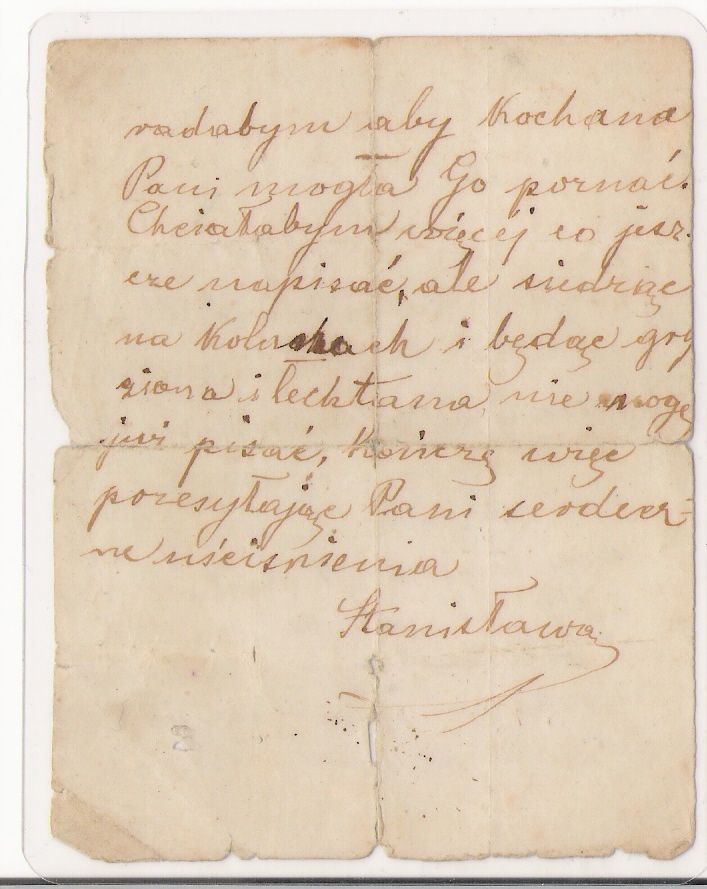 radabym aby Kochana
Pani mogła Go poznać.
Chciałabym więcéj co jesz-
cze napisać, ale siedząc
na Kolanach i będąc gry
ziona i łechtana nie mogę
już pisać, Kończę więc
przesyłając Pani serdecz-
ne uściśnienia
Stanisława